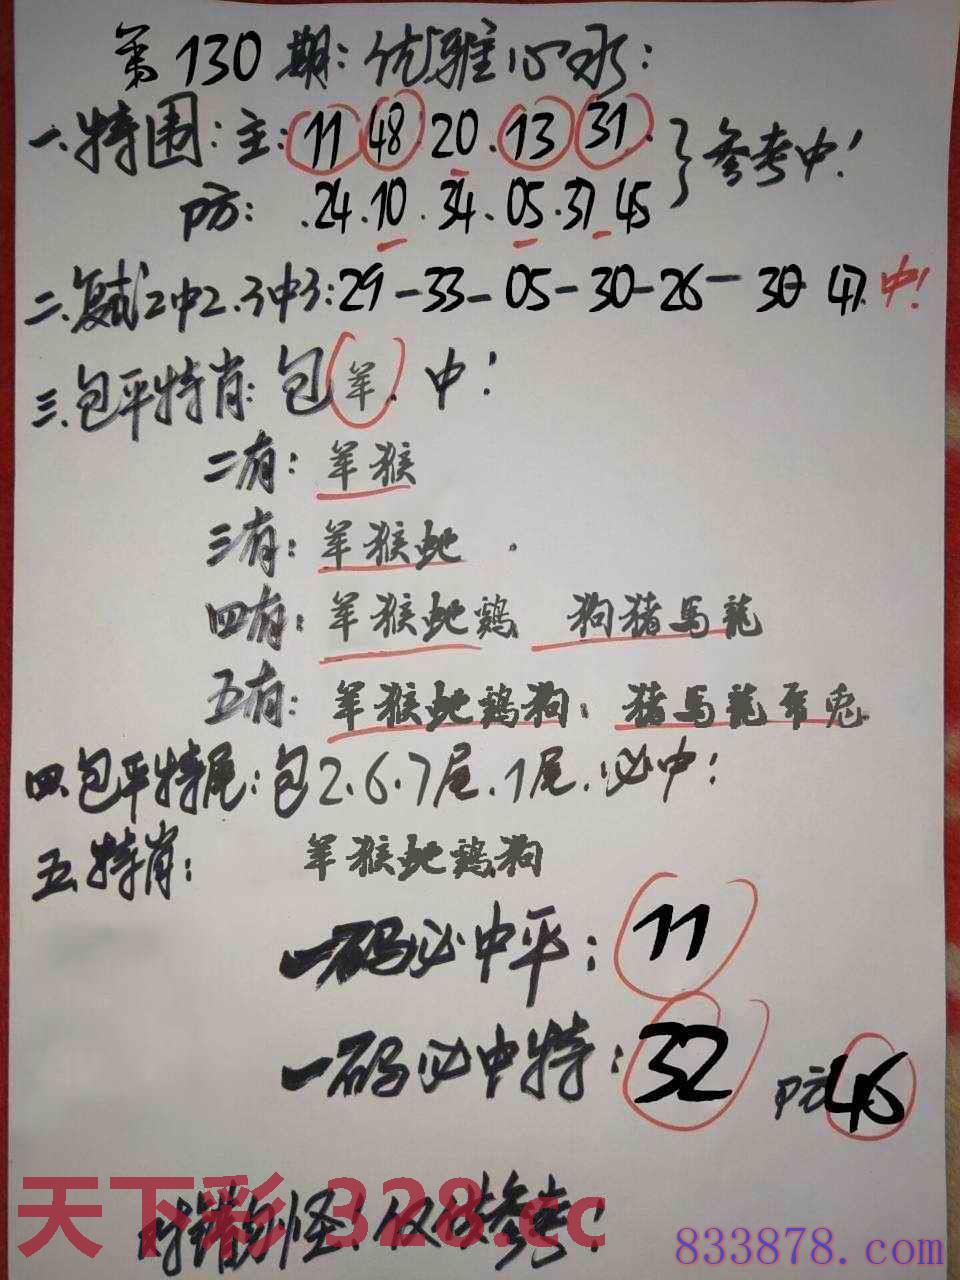 第130期:优雅心水:
一.特围:主:11 48 20.13 31.}参考中!
防:.24.10.34.05.37 45
二.复试2中2.3中3:29-33-05-30-26-38-47.中!
三.包平特肖:包羊.中!
二有:羊猴
三有:羊猴蛇.
四有:羊猴蛇鸡 狗猪马龍
五有:羊猴蛇鸡狗:猪马龍虎兔
四.包平特尾:包2.6.7尾.1尾.必中!
五.特肖: 羊猴蛇鸡狗
一码必中平:11
一码必中特:32 防46
错勿怪!仅供参考!
天下彩.328.cc
833878.com